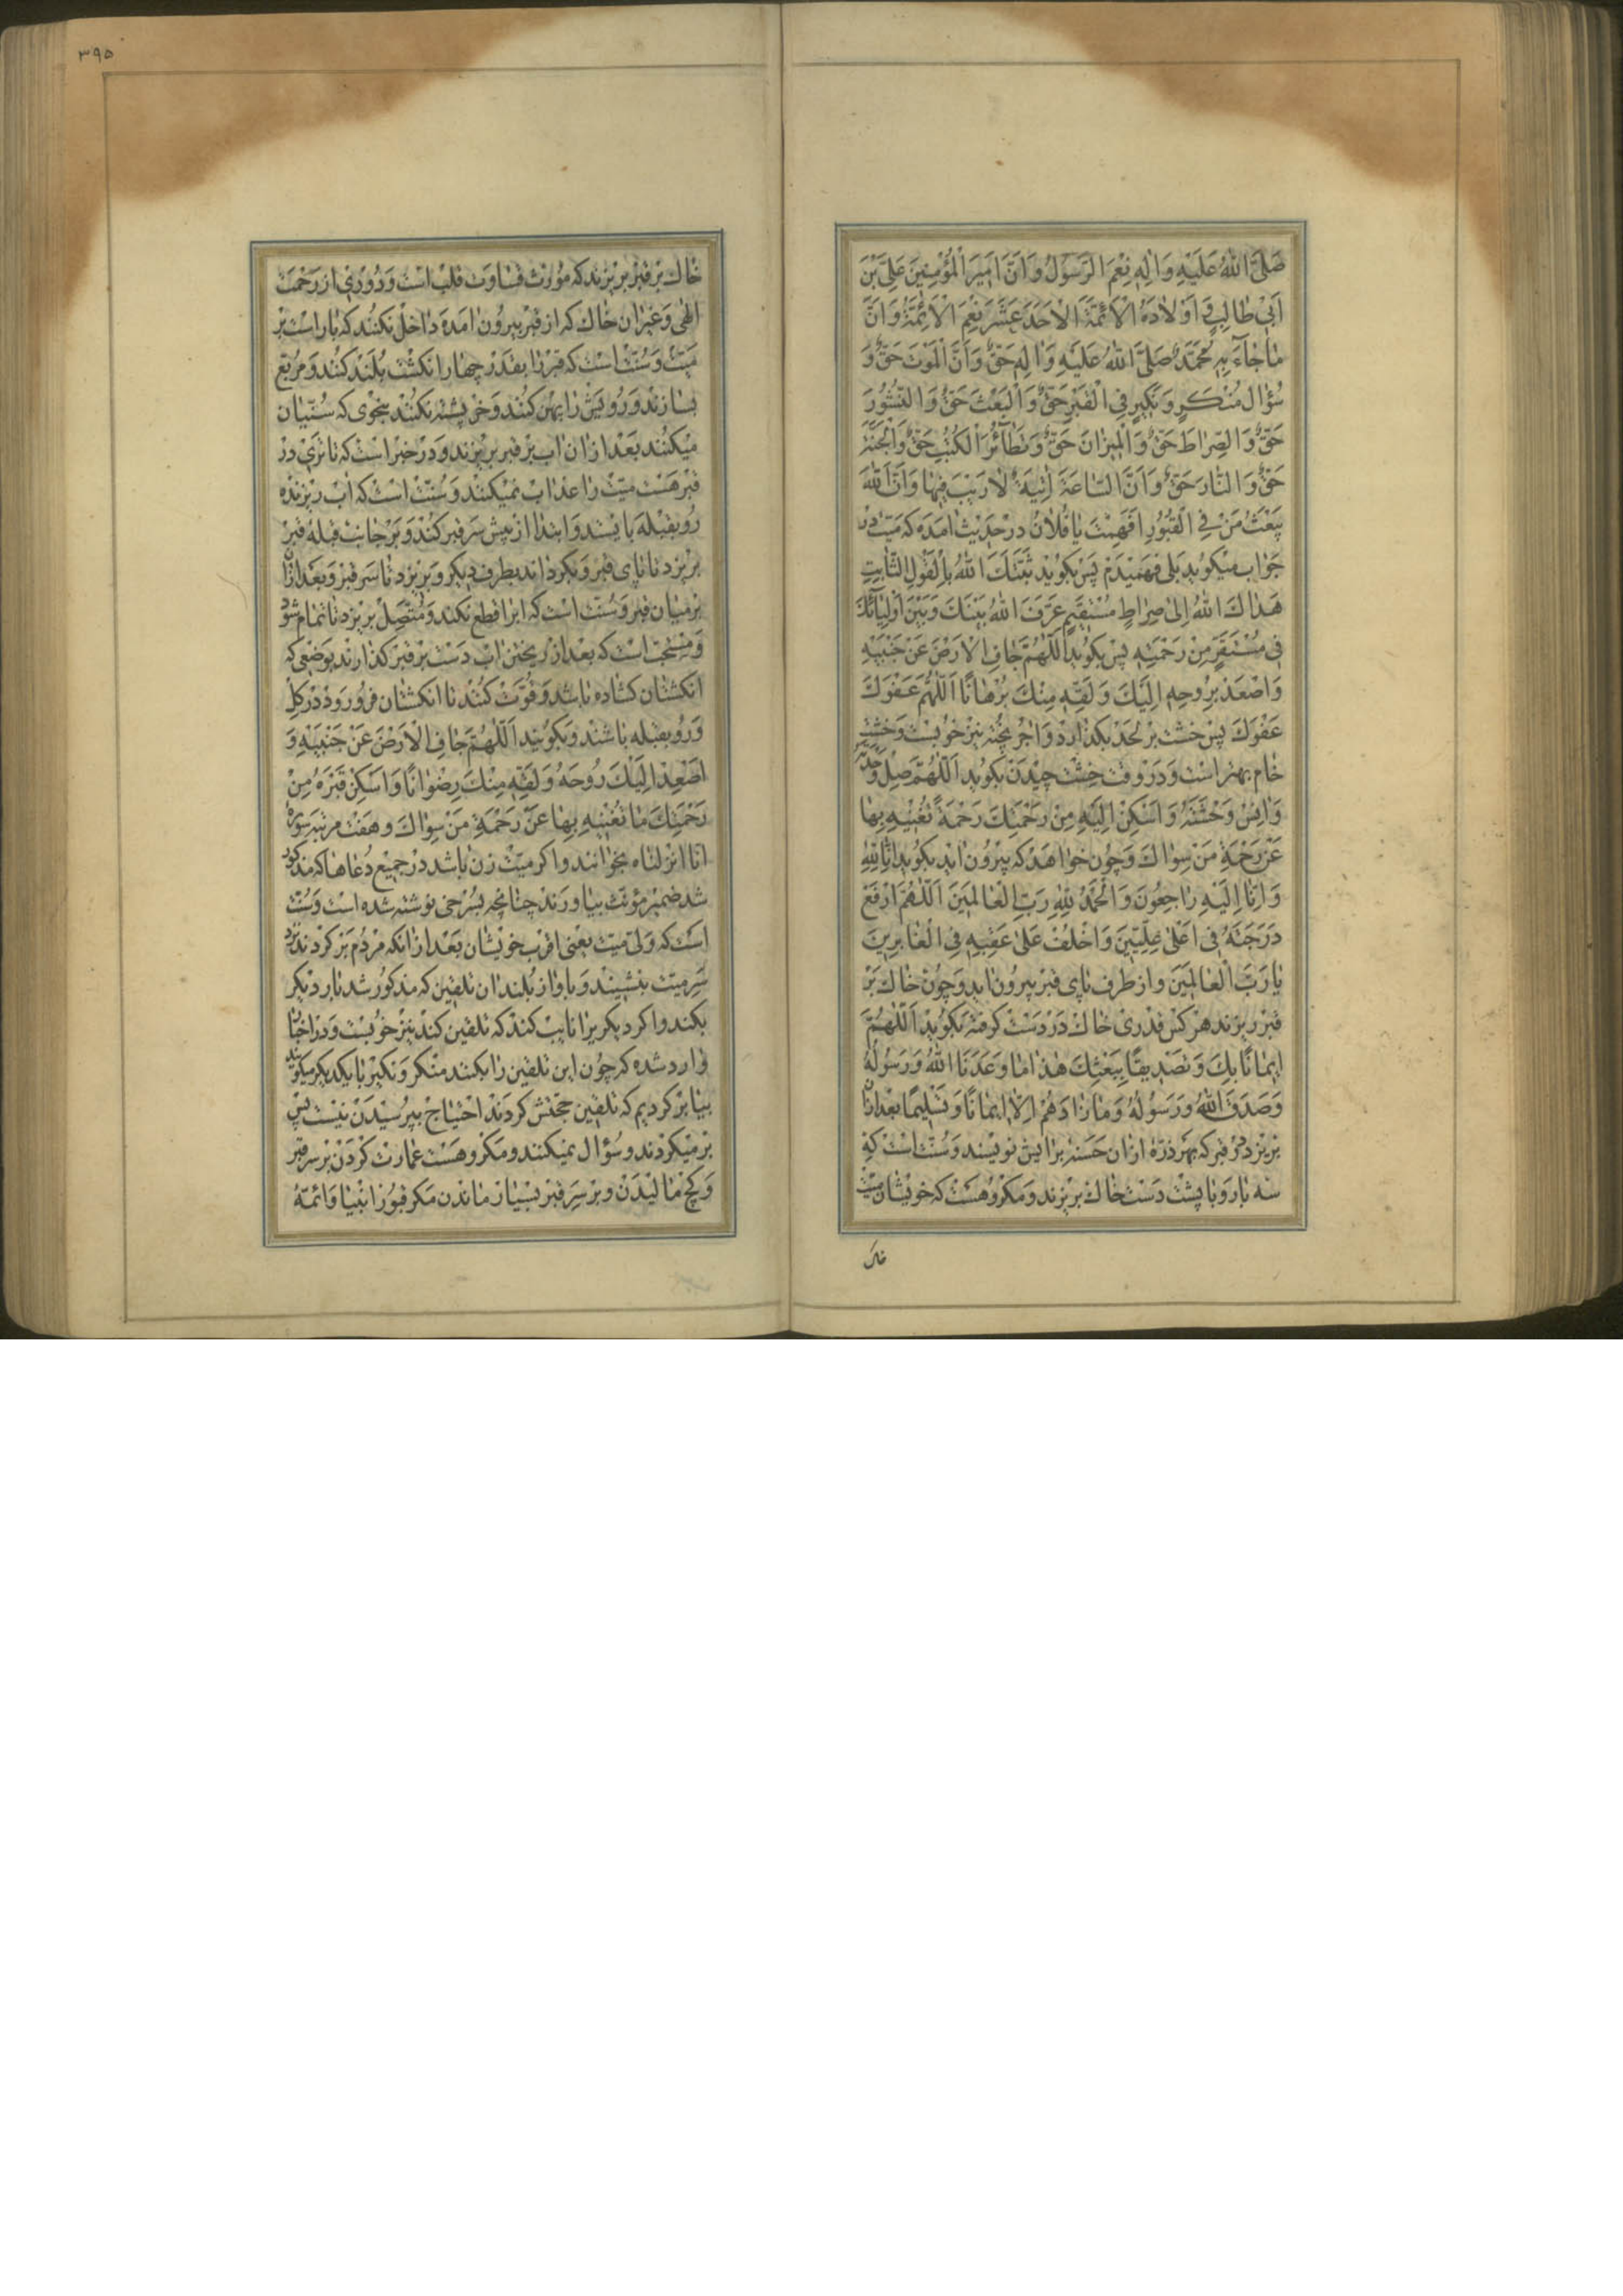 صَلَّی اللهُ عَلَیْهِ وَاٰلِهِ نِعْمَ الرَّسُولُ وَاَنَّ اَمِیرَ الْمُؤْمِنِینَ عَلِیَّ بْنَ
اَبِی طَالِبٍ وَ اَوْلَادَهُ الْاَئِمَّةَ الْاَحَدَ عَشَرَ نِعْمَ الْاَئِمَّةُ وَ اَنَّ
مٰا جٰاءَ بِهِ مُحَمَّدٌ صَلَّی اللهُ عَلَیْهِ وَاٰلِهِ حَقٌّ وَاَنَّ الْمَوْتَ حَقٌّ وَ
سُؤٰالَ مُنْکَرٍ وَ نَکِیرٍ فِی الْقَبْرِ حَقٌّ وَالْبَعْثَ حَقٌّ وَالنُّشُورَ
حَقٌّ وَ الصِّرٰاطَ حَقٌّ وَ الْمِیزٰانَ حَقٌّ وَ تَطٰائُرَ الْکُتُبِ حَقٌّ وَالْجَنَّةَ
حَقٌّ وَ النّٰارَ حَقٌّ وَ اَنَّ السّٰاعَةَ اٰتِیَةٌ لٰا رَیْبَ فِیهٰا وَ اَنَّ اللهَ
یَبْعَثُ مَنْ فِی الْقُبُورِ اَفَهِمْتَ یٰا فُلٰانُ در حدیث امده که میت در
جواب میکوید بلی فهمیدم پس بکوید ثَبَّتَکَ اللهُ بِالْقَوْلِ الثّٰابِتِ
هَدٰاکَ اللهُ اِلیٰ صِرٰاطٍ مُسْتَقِیمٍ عَرَّفَ اللهُ بَیْنَکَ وَبَیْنَ اَوْلِیٰائِکَ
فِی مُسْتَقَرٍّ مِنْ رَحْمَتِهِ پس بکوید اَللّٰهُمَّ جٰافِ الْاَرْضَ عَنْ جَنْبَیْهِ
وَ اصْعَدْ بِرُوحِهِ اِلَیْکَ وَ لَقِّهِ مِنْکَ بُرْهٰانًا اَللّٰهُمَّ عَفْوَکَ
عَفْوَکَ پس خشت بر لحد بکذارد و اجر پخته نیز خوبست و خشت
خام بهتر است و در وقت خشت چیدن بکوید اَللّٰهُمَّ صِلْ وَحْدَتَهُ
وَ اٰنِسْ وَحْشَتَهُ وَ اَسْکِنْ اِلَیْهِ مِنْ رَحْمَتِکَ رَحْمَةً تُغْنِیهِ بِهٰا
عَنْ رَحْمَةِ مَنْ سِوٰاکَ و چون خواهد که بیرون اید بکوید اِنّٰا لِلّٰهِ
وَ اِنّٰا اِلَیْهِ رٰاجِعُونَ وَ الْحَمْدُ لِلّٰهِ رَبِّ الْعٰالَمِینَ اَللّٰهُمَّ ارْفَعْ
دَرَجَتَهُ فِی اَعْلیٰ عِلِّیِّینَ وَ اخْلُفْ عَلیٰ عَقِبِهِ فِی الْغٰابِرِینَ
یٰا رَبَّ الْعٰالَمِینَ و از طرف پای قبر بیرون اید و چون خاک بر
قبر ریزند هر کس قدری خاک در دست کرفته بکوید اَللّٰهُمَّ
اِیمٰانًا بِکَ وَ تَصْدِیقًا بِبَعْثِکَ هٰذٰا مٰا وَعَدَنَا اللهُ وَ رَسُولُهُ
وَ صَدَقَ اللهُ وَ رَسُولُهُ وَ مٰا زٰادَهُمْ اِلّٰا اِیمٰانًا وَ تَسْلِیمًا بعد ازان
بریزد بر قبر که بهر ذرّهٔ ازان حسنه برایش نویسند و سنّت است که
سه بار و با پشت دست خاک بریزند و مکروهست که خویشان میت
خاک
۳۹۵
خاک بر قبر بریزند که مورث قساوت قلب است و دوری از رحمت
الٰهی و غیر ان خاک که از قبر بیرون امده داخل نکنند که بار است بر
میّت و سنّت است که قبر را بقدر چهار انکشت بلند کنند و مربّع
بسازند و رویش را پهن کنند و خر پشته نکنند بنحوی که سنّیان
میکنند بعد ازان اب بر قبر بریزند و در خبر است که تا تری در
قبر هست میّت را عذاب نمیکنند و سنّت است که اب ریزنده
رو بقبله بایستد و ابتدا از پیش سر قبر کند و بر جانب قبله قبر
بریزد تا پای قبر و بکرداند بطرف دیکر و بریزد تا سر قبر و بعد ازان
بر میان قبر و سنّت است که ابرا قطع نکند و متّصل بریزد تا تمام شود
و مستحبّ است که بعد از ریختن اب دست بر قبر کذارند بوضعی که
انکشتان کشاده باشد و قوّت کنند تا انکشتان فرو رود در کل
و رو بقبله باشند و بکویند اَللّٰهُمَّ جٰافِ الْاَرْضَ عَنْ جَنْبَیْهِ وَ
اَصْعِدْ اِلَیْکَ رُوحَهُ وَ لَقِّهِ مِنْکَ رِضْوٰانًا وَ اَسْکِنْ قَبْرَهُ مِنْ
رَحْمَتِکَ مٰا تُغْنِیهِ بِهٰا عَنْ رَحْمَةِ مَنْ سِوٰاکَ و هفت مرتبه سورهٔ
انّا انزلناه بخوانند و اکر میّت زن باشد در جمیع دعاها که مذکور
شد ضمیر مؤنّث بیاورند چنانچه بسرخی نوشته شده است و سنّت
است که ولی میّت یعنی اقرب خویشان بعد ازانکه مردم بر کردند نزد
سر میّت بنشیند و باواز بلند ان تلقین که مذکور شد بار دیکر
بکند و اکر دیکریرا نایب کند که تلقین کند نیز خوبست و در اخبار
وارد شده که چون این تلقین را بکنند منکر و نکیر با یکدیکر میکویند
بیا بر کردیم که تلقین حجتش کردند احتیاج بپرسیدن نیست پس
بر میکردند و سؤال نمیکنند و مکروهست عمارت کردن بر سر قبر
و کچ مالیدن و بر سر قبر بسیار ماندن مکر قبور انبیا و ائمّهٔ